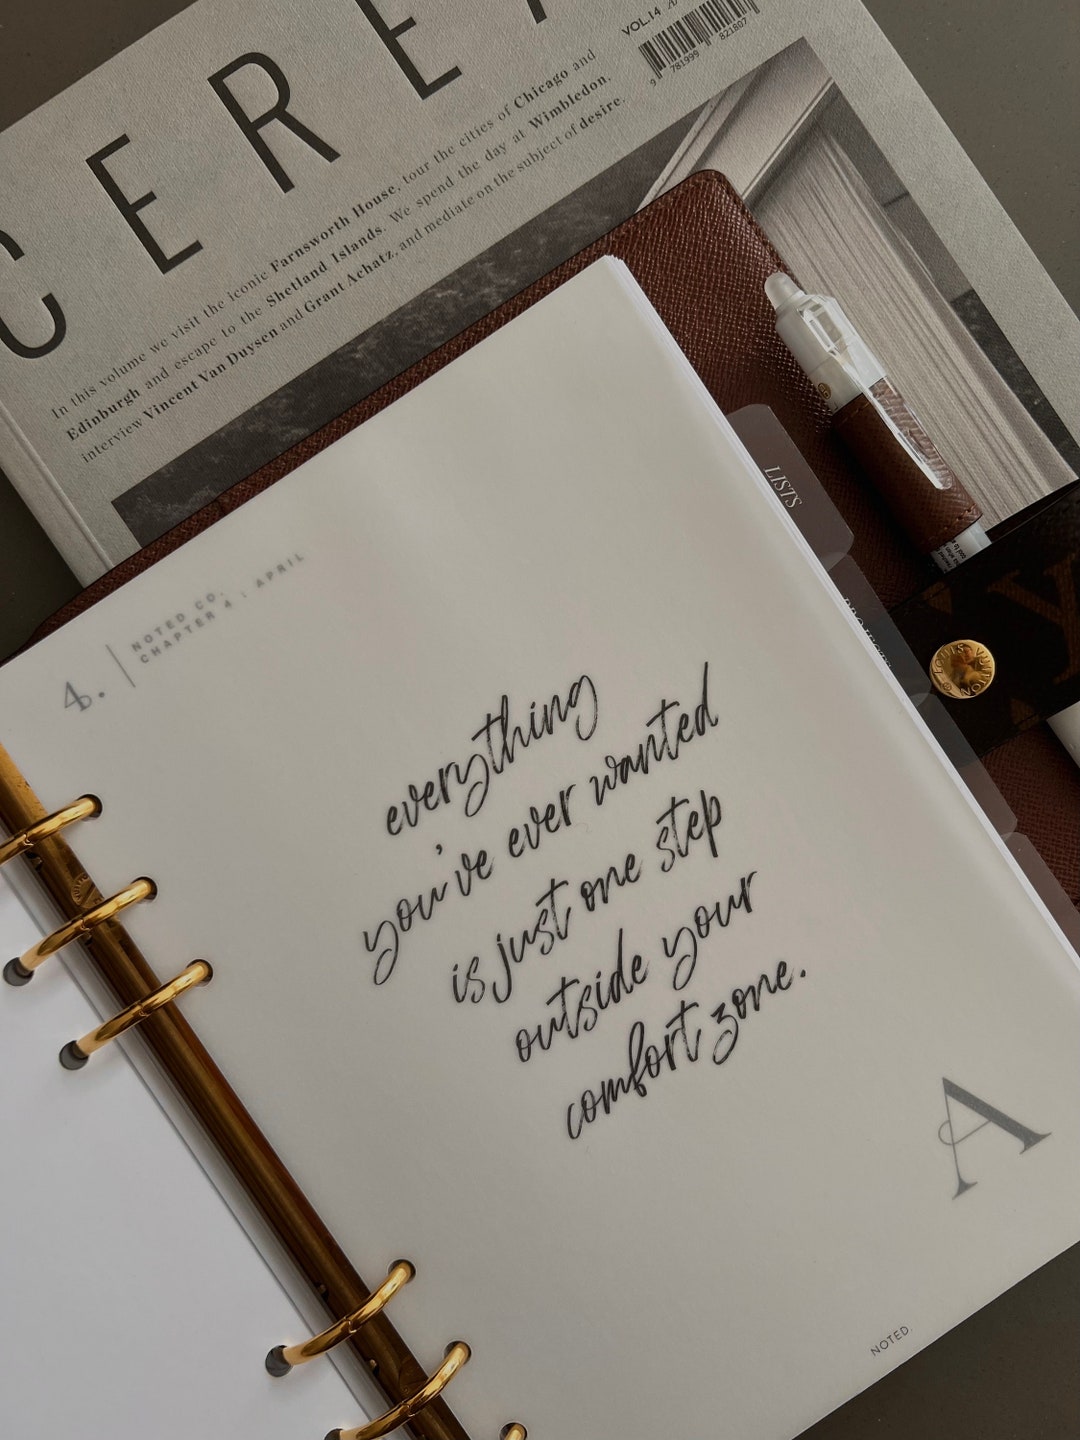 CERE
VOL.14
9 781999 821807
In this volume we visit the iconic Farnsworth House, tour the cities of Chicago and
Edinburgh and escape to the Shetland Islands. We spend the day at Wimbledon,
interview Vincent Van Duysen and Grant Achatz, and mediate on the subject of desire.
LISTS
LOUIS VUITTON
4.
NOTED CO.
CHAPTER 4 : APRIL
everything
you've ever wanted
is just one step
outside your
comfort zone.
A
NOTED.